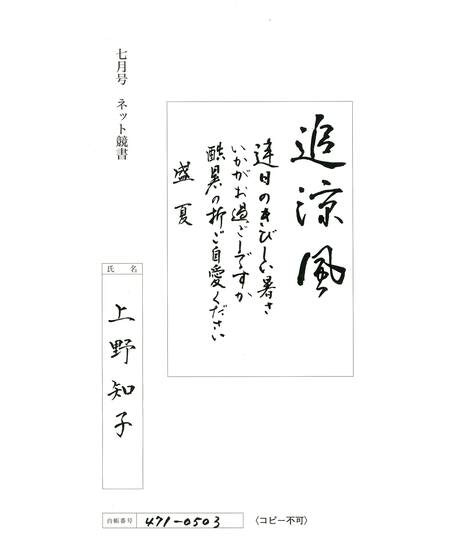 七月号 ネット競書
追涼風
連日のきびしい暑さ
いかがお過ごしですか
酷暑の折ご自愛ください
盛夏
氏名
上野知子
台帳番号 471-0503
(コピー不可)